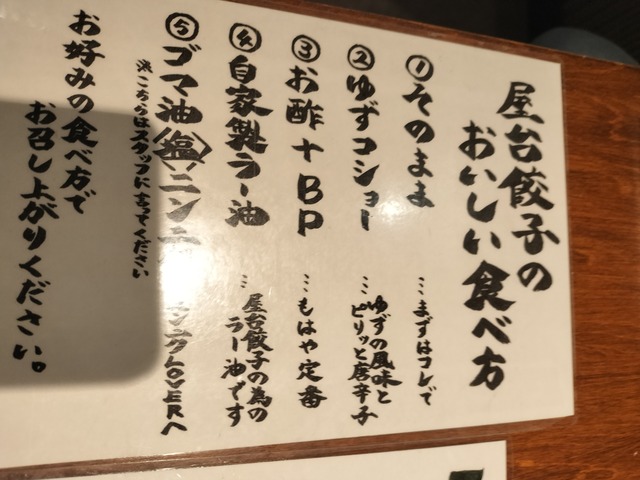 屋台餃子の
おいしい食べ方
①そのまま …まずはコレで
②ゆずコショー …ゆずの風味と
ピリッと唐辛子
③お酢+BP …もはや定番
④自家製ラー油 …屋台餃子の為の
ラー油です
⑤ゴマ油(塩)ニンニ LOVERへ
※こちらはスタッフに言ってください
お好みの食べ方で
お召し上がりください。